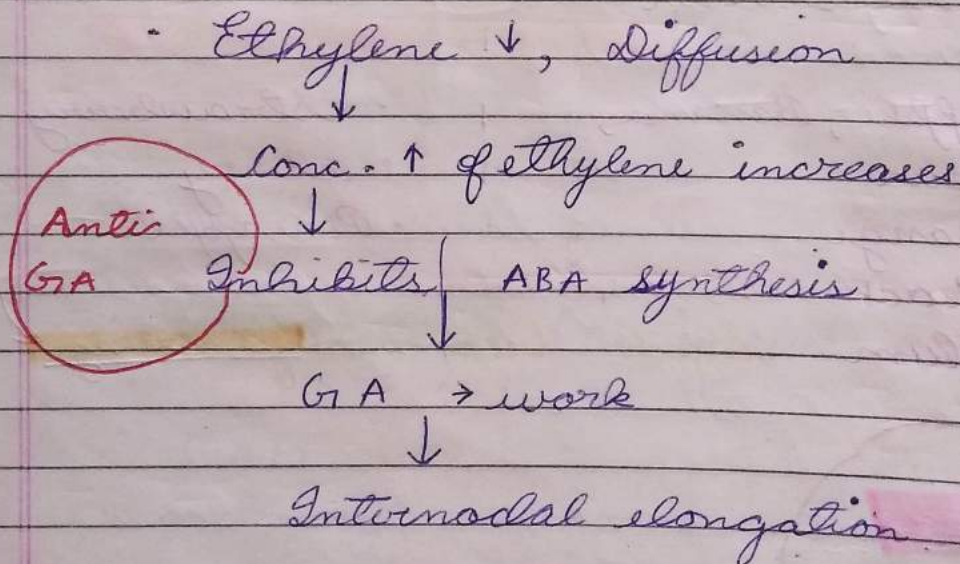 Ethylene ↓, Diffusion
↓
Conc. ↑ of ethylene increases
↓
Anti
GA
Inhibits ABA synthesis
↓
GA → work
↓
Internodal elongation